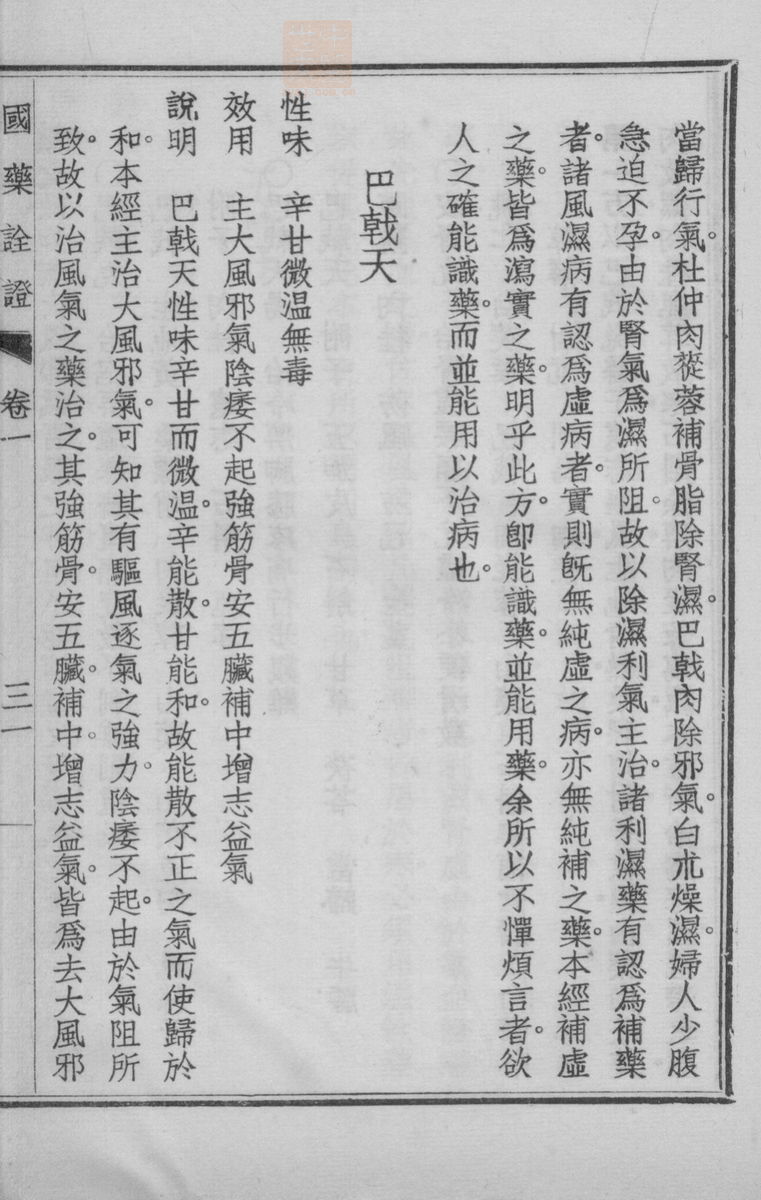 當歸行氣。杜仲肉蓯蓉補骨脂除腎濕。巴戟肉除邪氣。白朮燥濕。婦人少腹
急迫不孕。由於腎氣爲濕所阻。故以除濕利氣主治。諸利濕藥有認爲補藥
者。諸風濕病有認爲虛病者。實則旣無純虛之病。亦無純補之藥。本經補虛
之藥。皆爲瀉實之藥。明乎此方。卽能識藥。並能用藥。余所以不憚煩言者。欲
人之確能識藥。而並能用以治病也。
巴戟天
性味 辛甘微温無毒
效用 主大風邪氣陰痿不起強筋骨安五臟補中增志益氣
說明 巴戟天性味辛甘而微温。辛能散。甘能和。故能散不正之氣而使歸於
和。本經主治大風邪氣。可知其有驅風逐氣之強力。陰痿不起。由於氣阻所
致。故以治風氣之藥治之。其強筋骨。安五臟。補中。增志益氣。皆爲去大風邪
國藥詮證 卷一 三一